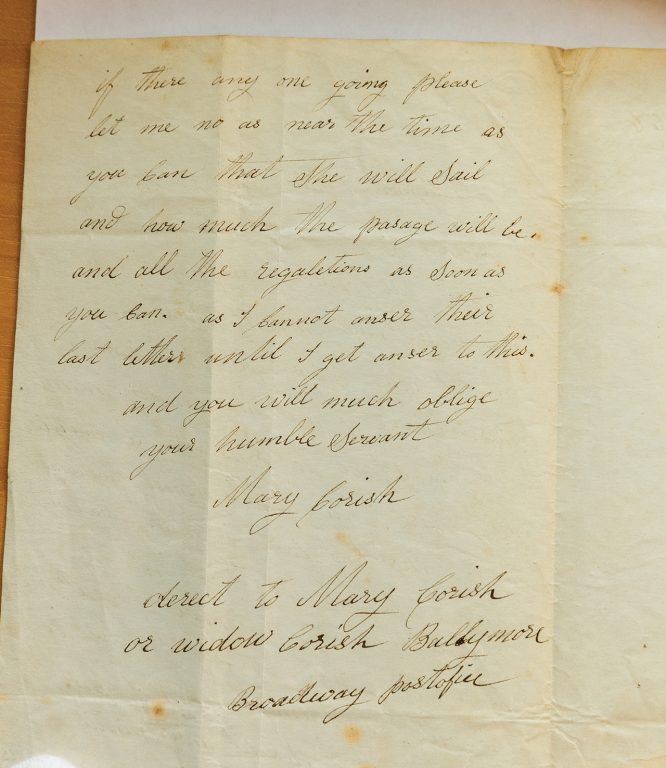 if there any one going please
let me no as near the time as
you Can that She will Sail
and how much the pasage will be.
and all the regaletions as Soon as
you Can. as I Cannot anser their
last letters until I get anser to this.
and you will much oblige
your humble Servant
Mary Corish
derect to Mary Corish
or widow Corish Ballymore
Broadway postofice